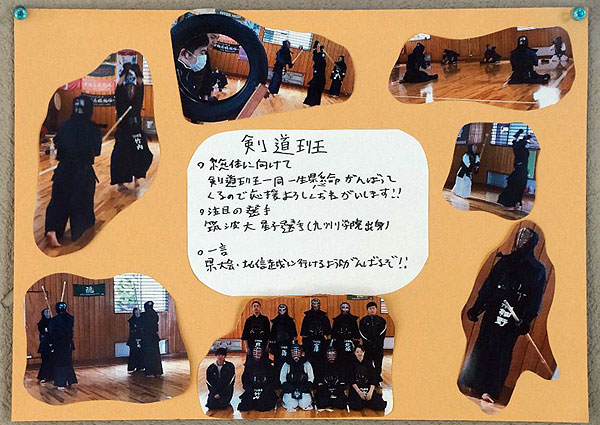 剣道班
○総体に向けて
剣道班一同一生懸命がんばって
くるので応援よろしくおねがいします!!
○注目の選手
筑波大 星子選手(九州学院出身)
○一言
県大会・北信越に行けるようがんばるぞ!!
竹内